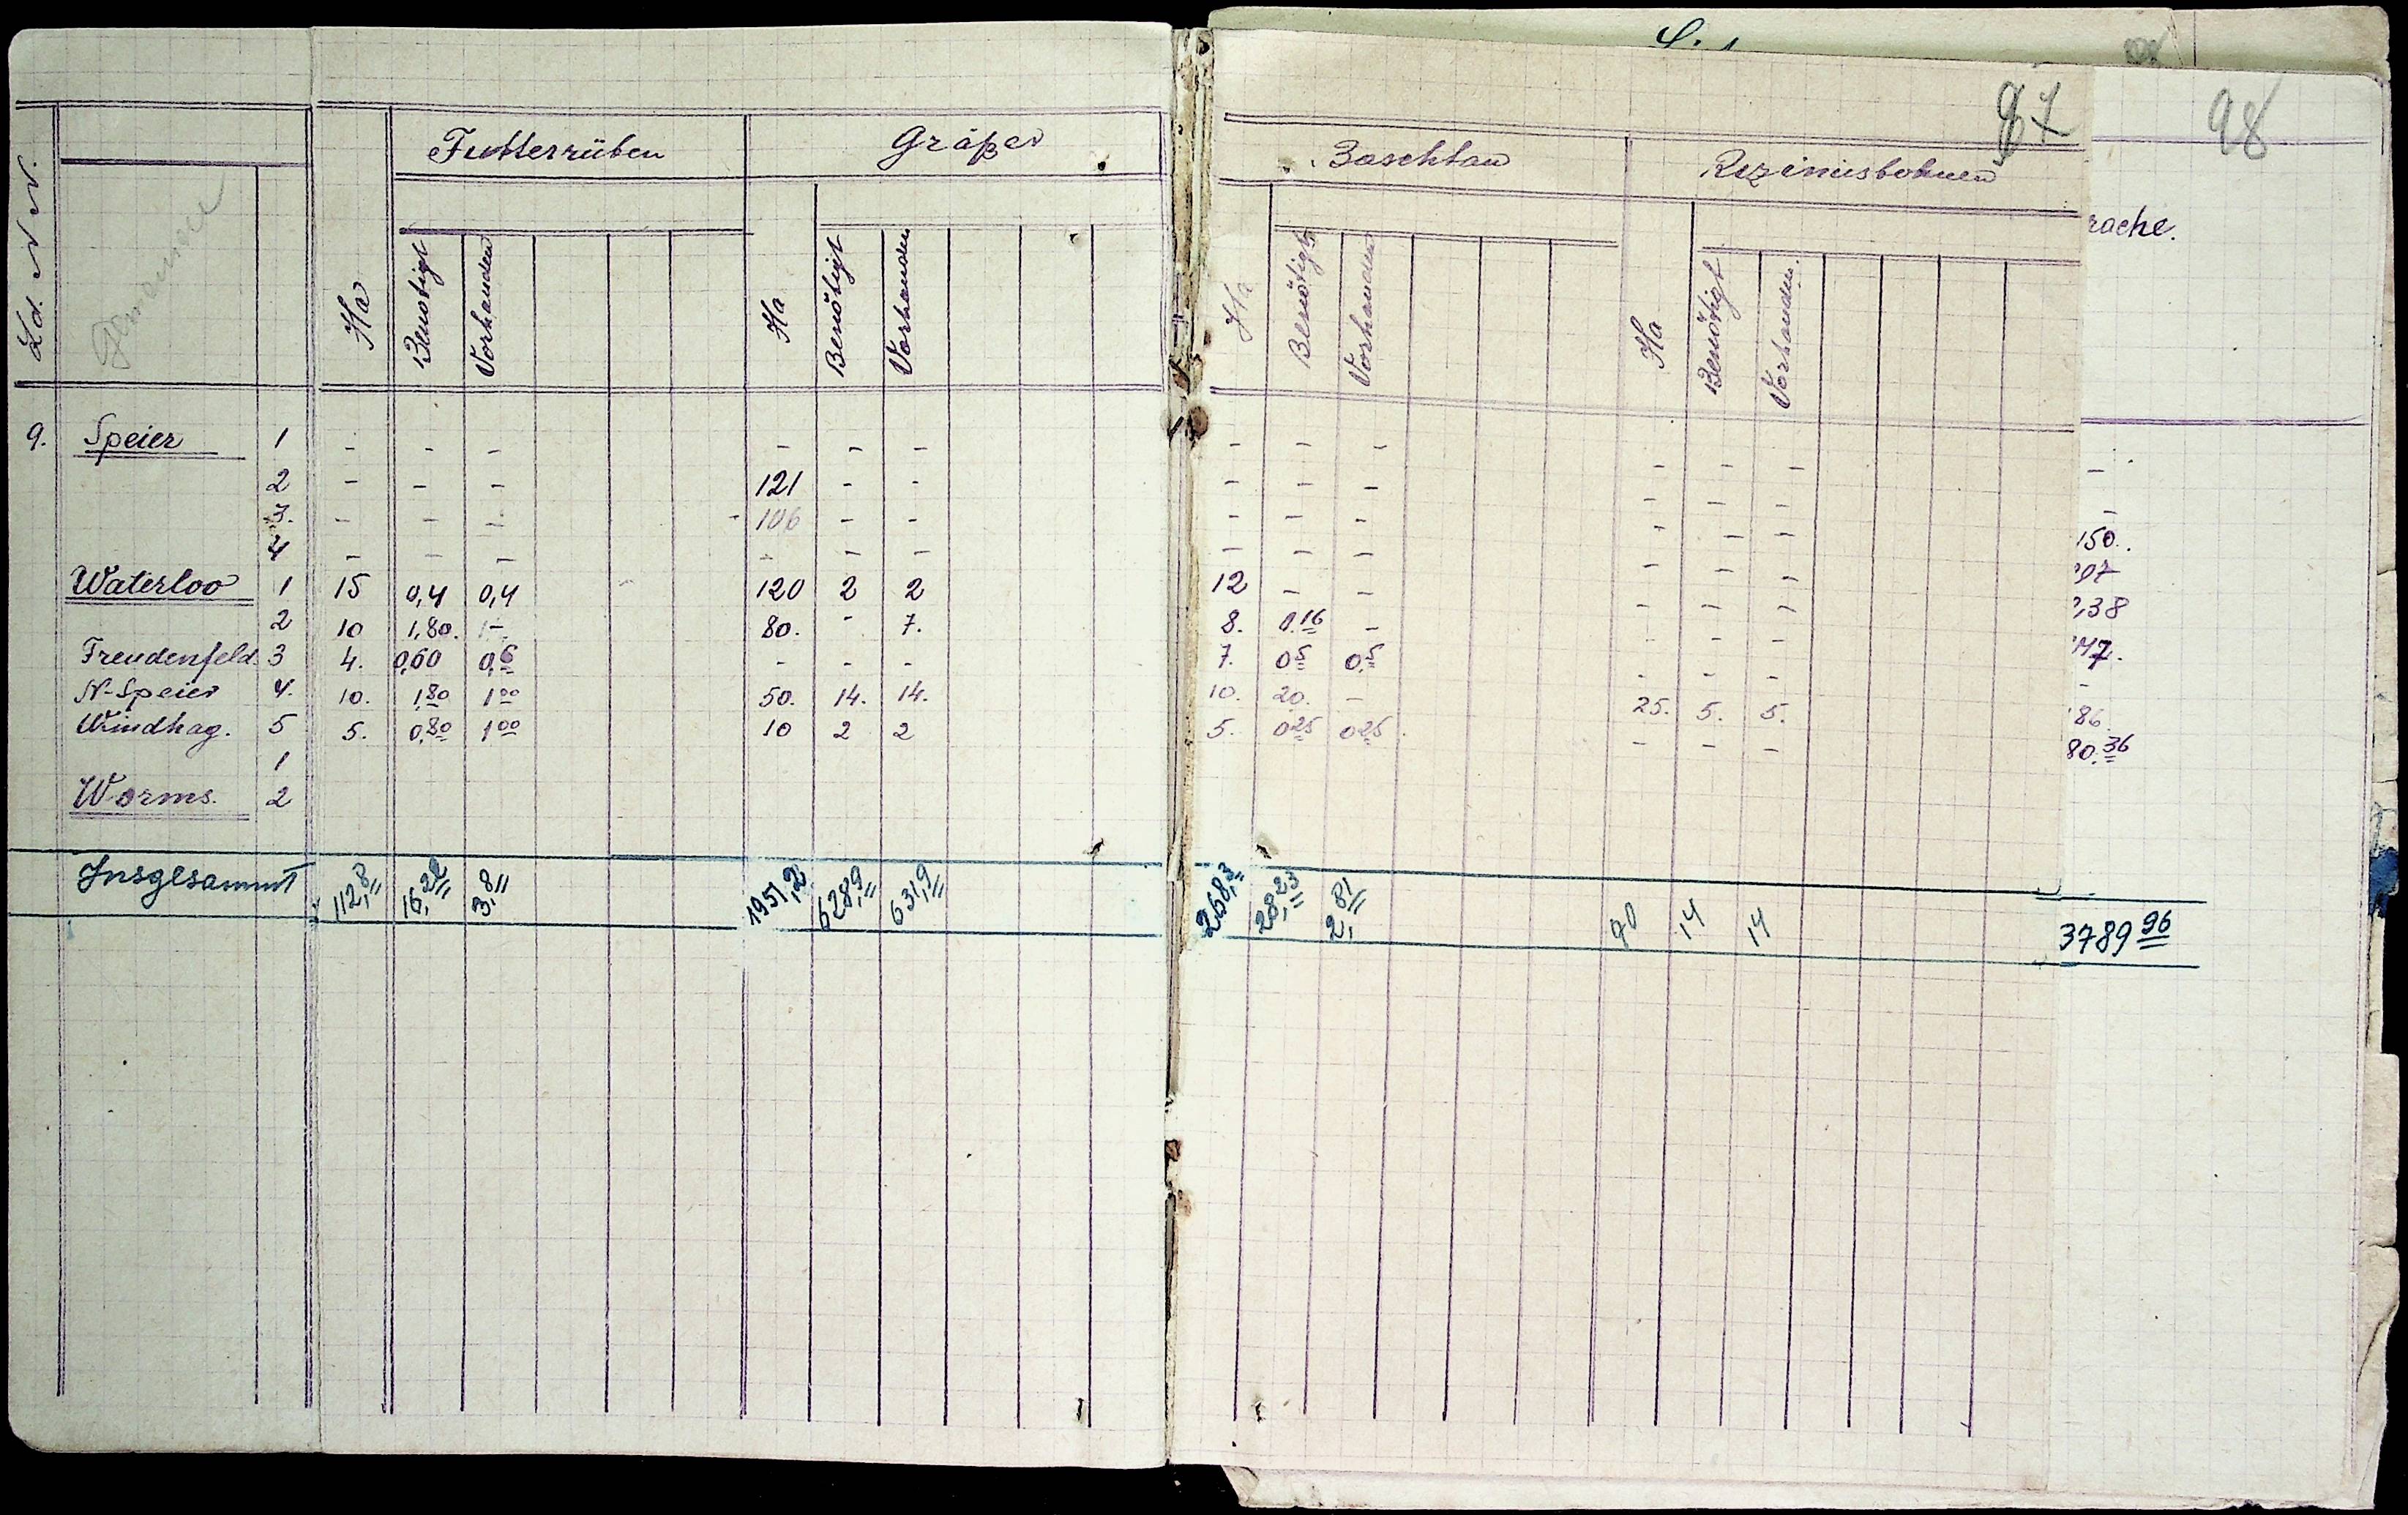 87 98
Futterrüben Gräßer Baschtau Rizinusbohnen rache.
Ld. N N. Gemeinde Ha Benötigt Vorhanden Ha Benötigt Vorhanden Ha Benötigt Vorhanden Ha Benötigt Vorhanden.
9. Speier 1 - - - - - - - - - - - - -
2 - - - 121 - - - - - - - - -
3. - - - 106 - - - - - - - - 150.
4 - - - - - - - - - - - - 97
Waterloo 1 15 0,4 0,4 120 2 2 12 - - - - - ,38
2 10 1,80. 1- 80. - 7. 8. 0.16 - - - - 47.
Freudenfeld. 3 4. 0,60 0,6 - - - 7. 0,5 0,5 - - - -
N-Speier 4. 10. 1,80 1 00 50. 14. 14. 10. 20. - 25. 5. 5. 86.
Windhag. 5 5. 0,80 1 00 10 2 2 5. 0,25 0,25. - - - 80.36
1
Worms. 2
Insgesammt 112,8 16,22 3,8 1951,2 628,9 631,9 268,3 28,23 2,81 90 14 14 3789 96